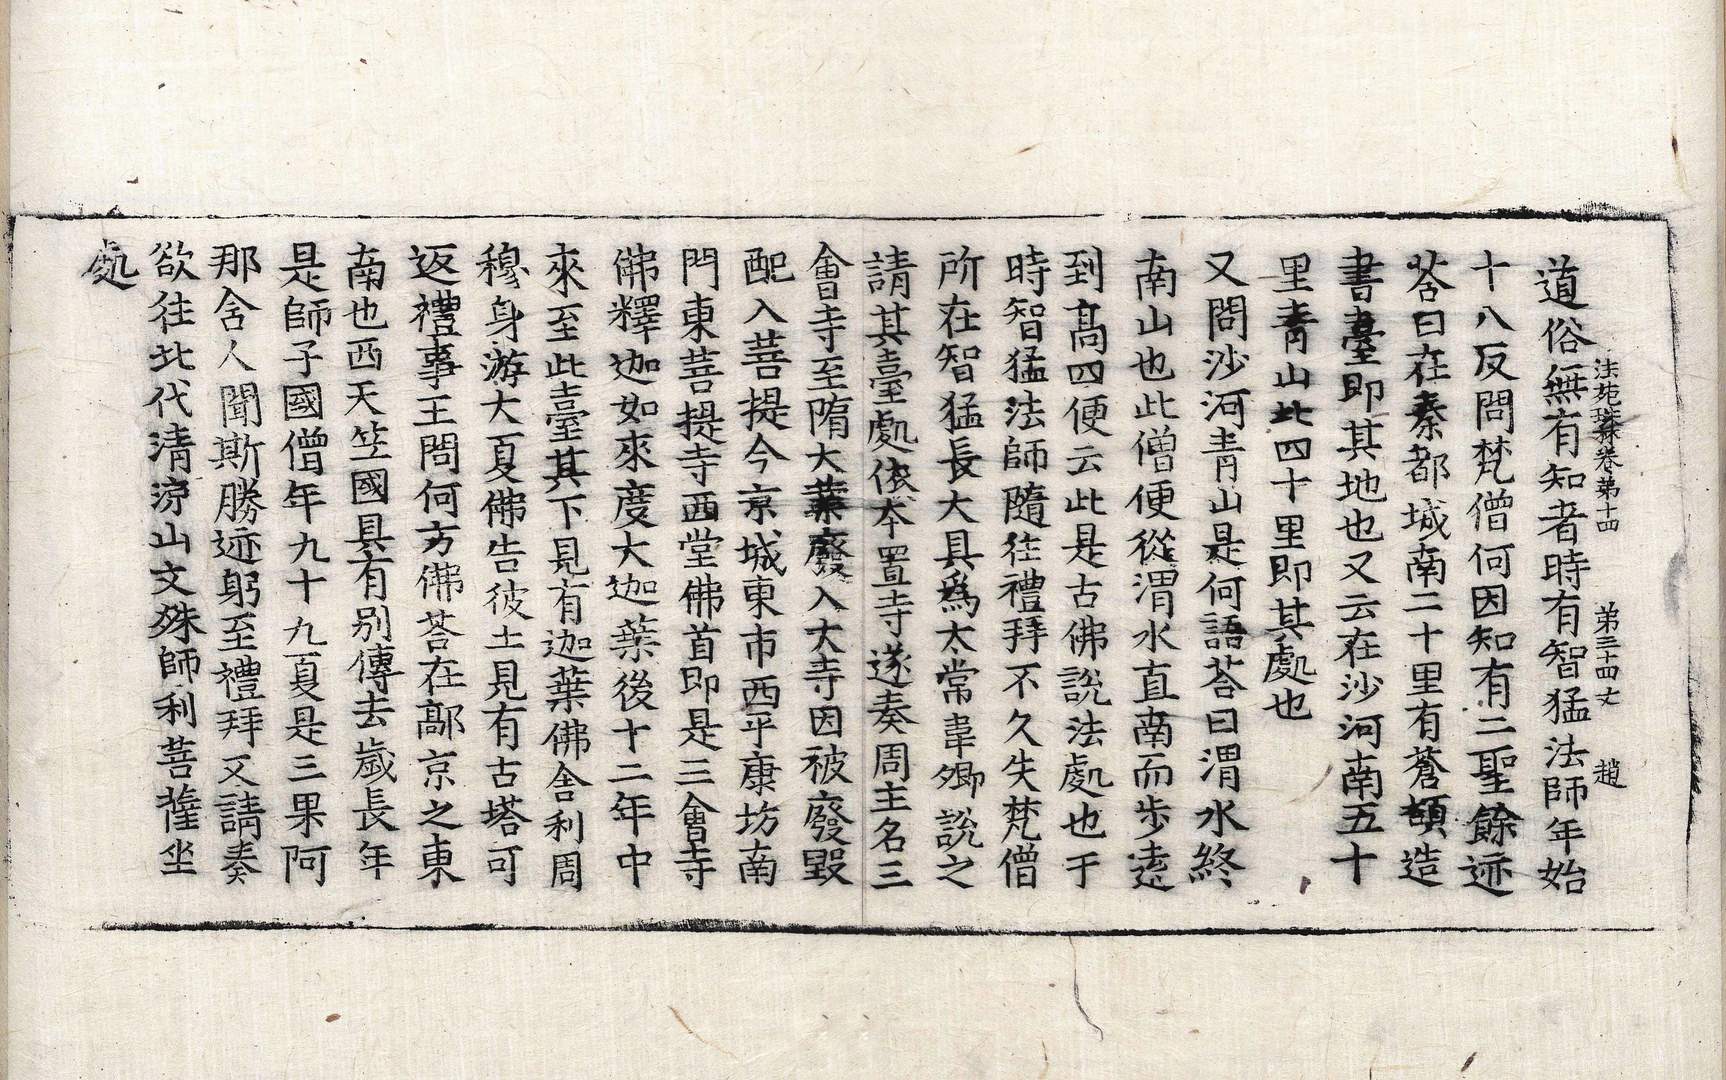 法苑珠林卷第十四　第三十四丈　趙
道俗無有知者時有智猛法師年始
十八反問梵僧何因知有二聖餘迹
荅曰在秦都城南二十里有蒼頡造
書臺即其地也又云在沙河南五十
里青山北四十里即其處也
又問沙河青山是何語荅曰渭水終
南山也此僧便從渭水直南而步遠
到高四便云此是古佛說法處也于
時智猛法師隨往禮拜不久失梵僧
所在智猛長大具爲太常韋卿說之
請其臺處依本置寺遂奏周主名三
會寺至隋大業廢入大寺因被廢毀
配入菩提今京城東市西平康坊南
門東菩提寺西堂佛首即是三會寺
佛釋迦如來度大迦葉後十二年中
來至此臺其下見有迦葉佛舍利周
穆身游大夏佛告彼土見有古塔可
返禮事王問何方佛荅在鄗京之東
南也西天笠國具有別傳去歲長年
是師子國僧年九十九夏是三果阿
那舍人聞斯勝迹躬至禮拜又請奏
欲往北代清涼山文殊師利菩薩坐
處